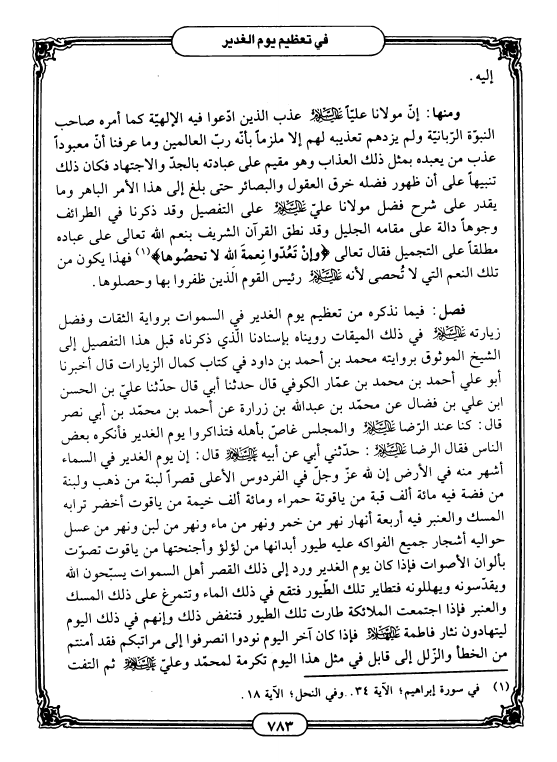 في تعظيم يوم الغدير
إليه.
ومنها: إنّ مولانا عليّاً عليه السلام عذب الذين ادّعوا فيه الإلهيّة كما أمره صاحب
النبوّة الرّبانيّة ولم يزدهم تعذيبه لهم إلا ملزماً بأنّه ربّ العالمين وما عرفنا أنّ معبوداً
عذب من يعبده بمثل ذلك العذاب وهو مقيم على عبادته بالجدّ والاجتهاد فكان ذلك
تنبيهاً على أن ظهور فضله خرق العقول والبصائر حتى بلغ إلى هذا الأمر الباهر وما
يقدر على شرح فضل مولانا عليّ عليه السلام على التفصيل وقد ذكرنا في الطرائف
وجوهاً دالة على مقامه الجليل وقد نطق القرآن الشريف بنعم الله تعالى على عباده
مطلقاً على التجميل فقال تعالى ﴿وإنْ تَعُدّوا نِعمةَ الله لا تحصُوها﴾(١) فهذا يكون من
تلك النعم التي لا تُحصى لأنه عليه السلام رئيس القوم الّذين ظفروا بها وحصلوها.
فصل: فيما نذكره من تعظيم يوم الغدير في السموات برواية الثقات وفضل
زيارته عليه السلام في ذلك الميقات رويناه بإسنادنا الّذي ذكرناه قبل هذا التفصيل إلى
الشيخ الموثوق بروايته محمد بن أحمد بن داود في كتاب كمال الزيارات قال أخبرنا
أبو علي أحمد بن محمد بن عمّار الكوفي قال حدثنا أبي قال حدّثنا عليّ بن الحسن
ابن علي بن فضال عن محمّد بن عبدالله بن زرارة عن أحمد بن محمّد بن أبي نصر
قال: كنا عند الرّضا عليه السلام والمجلس غاصّ بأهله فتذاكروا يوم الغدير فأنكره بعض
الناس فقال الرضا عليه السلام: حدّثني أبي عن أبيه عليه السلام قال: إن يوم الغدير في السماء
أشهر منه في الأرض إن لله عزّ وجلّ في الفردوس الأعلى قصراً لبنة من ذهب ولبنة
من فضة فيه مائة ألف قبة من ياقوتة حمراء ومائة ألف خيمة من ياقوت أخضر ترابه
المسك والعنبر فيه أربعة أنهار نهر من خمر ونهر من ماء ونهر من لبن ونهر من عسل
حواليه أشجار جميع الفواكه عليه طيور أبدانها من لؤلؤ وأجنحتها من ياقوت تصوّت
بألوان الأصوات فإذا كان يوم الغدير ورد إلى ذلك القصر أهل السموات يسبّحون الله
ويقدّسونه ويهللونه فتطاير تلك الطّيور فتقع في ذلك الماء وتتمرغ على ذلك المسك
والعنبر فإذا اجتمعت الملائكة طارت تلك الطيور فتنفض ذلك وإنهم في ذلك اليوم
ليتهادون نثار فاطمة عليها السلام فإذا كان آخر اليوم نودوا انصرفوا إلى مراتبكم فقد أمنتم
من الخطأ والزّلل إلى قابل في مثل هذا اليوم تكرمة لمحمّد وعليّ عليه السلام ثم التفت
(١) في سورة إبراهيم؛ الآية ٣٤. وفي النحل؛ الآية ١٨.
٧٨٣